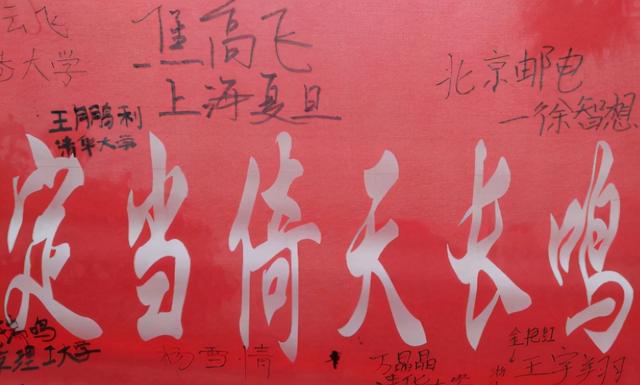 云飞
大学
焦高飞
上海复旦
北京邮电
一徐智想
王月鹏利
清华大学
定当倚天长鸣
鸣
理工大学
杨雪情
万晶晶
清华大学
金艳红
王宇翔
浙